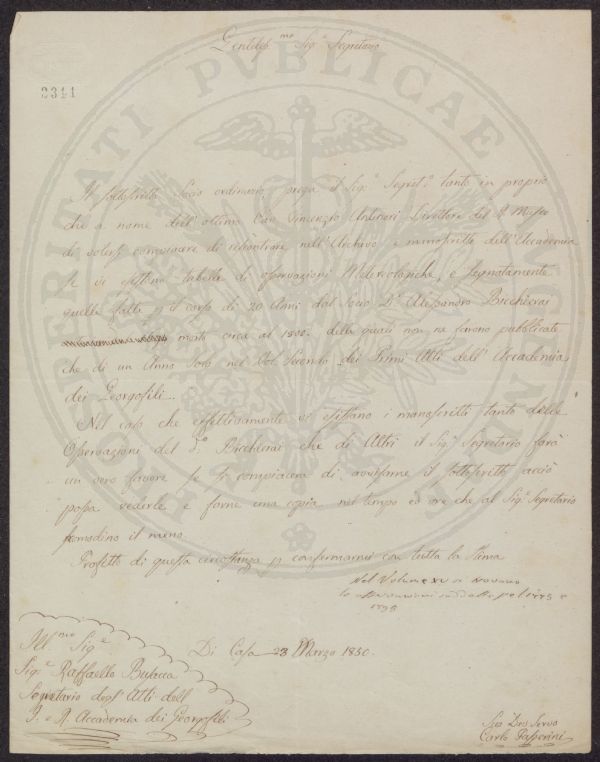 Gentiliss.mo Sig.e Segretario
HOSPERITATI PVBLICAE AVGENDAE
2344
Il sottoscritto Socio ordinario prega il Sig.e Segret.o tanto in proprio
che a nome dell'ottimo Cav. Vincenzio Antinori Direttore del R. Museo
di volersi compiacere di riscontrare nell'Archivio e manoscritti dell'Accademia
se vi esistono tabelle di osservazioni Meteorologiche, e segnatamente
quelle fatte p il corso di 20 Anni dal Socio D.r Alessandro Bicchierai
morto circa al 1802. delle quali non ne furono pubblicate
che di un Anno solo nel Vol. Secondo dei Primi Atti dell'Accademia
dei Georgofili..
Nel caso che effettivamente vi esistano i manoscritti tanto delle
Osservazioni del D.r Bicchierai che di Altri il Sig.e Segretario farà
un vero favore se si compiacerà di avvisarne il sottoscritto acciò
possa vederle e farne una copia nel tempo ed ore che al Sig.e Segretario
incomodino il meno.
Profitto di questa circostanza p confermarmi con tutta la stima
Nel Volume XV si trovano
le osservazioni
1795
Di Casa 23 Marzo 1850.
Ill.mo Sig.e
Sig.e Raffaello Busacca
Segretario degl'Atti dell
I. e R. Accademia dei Georgofili
Suo Dev. Servo
Carlo Passerini